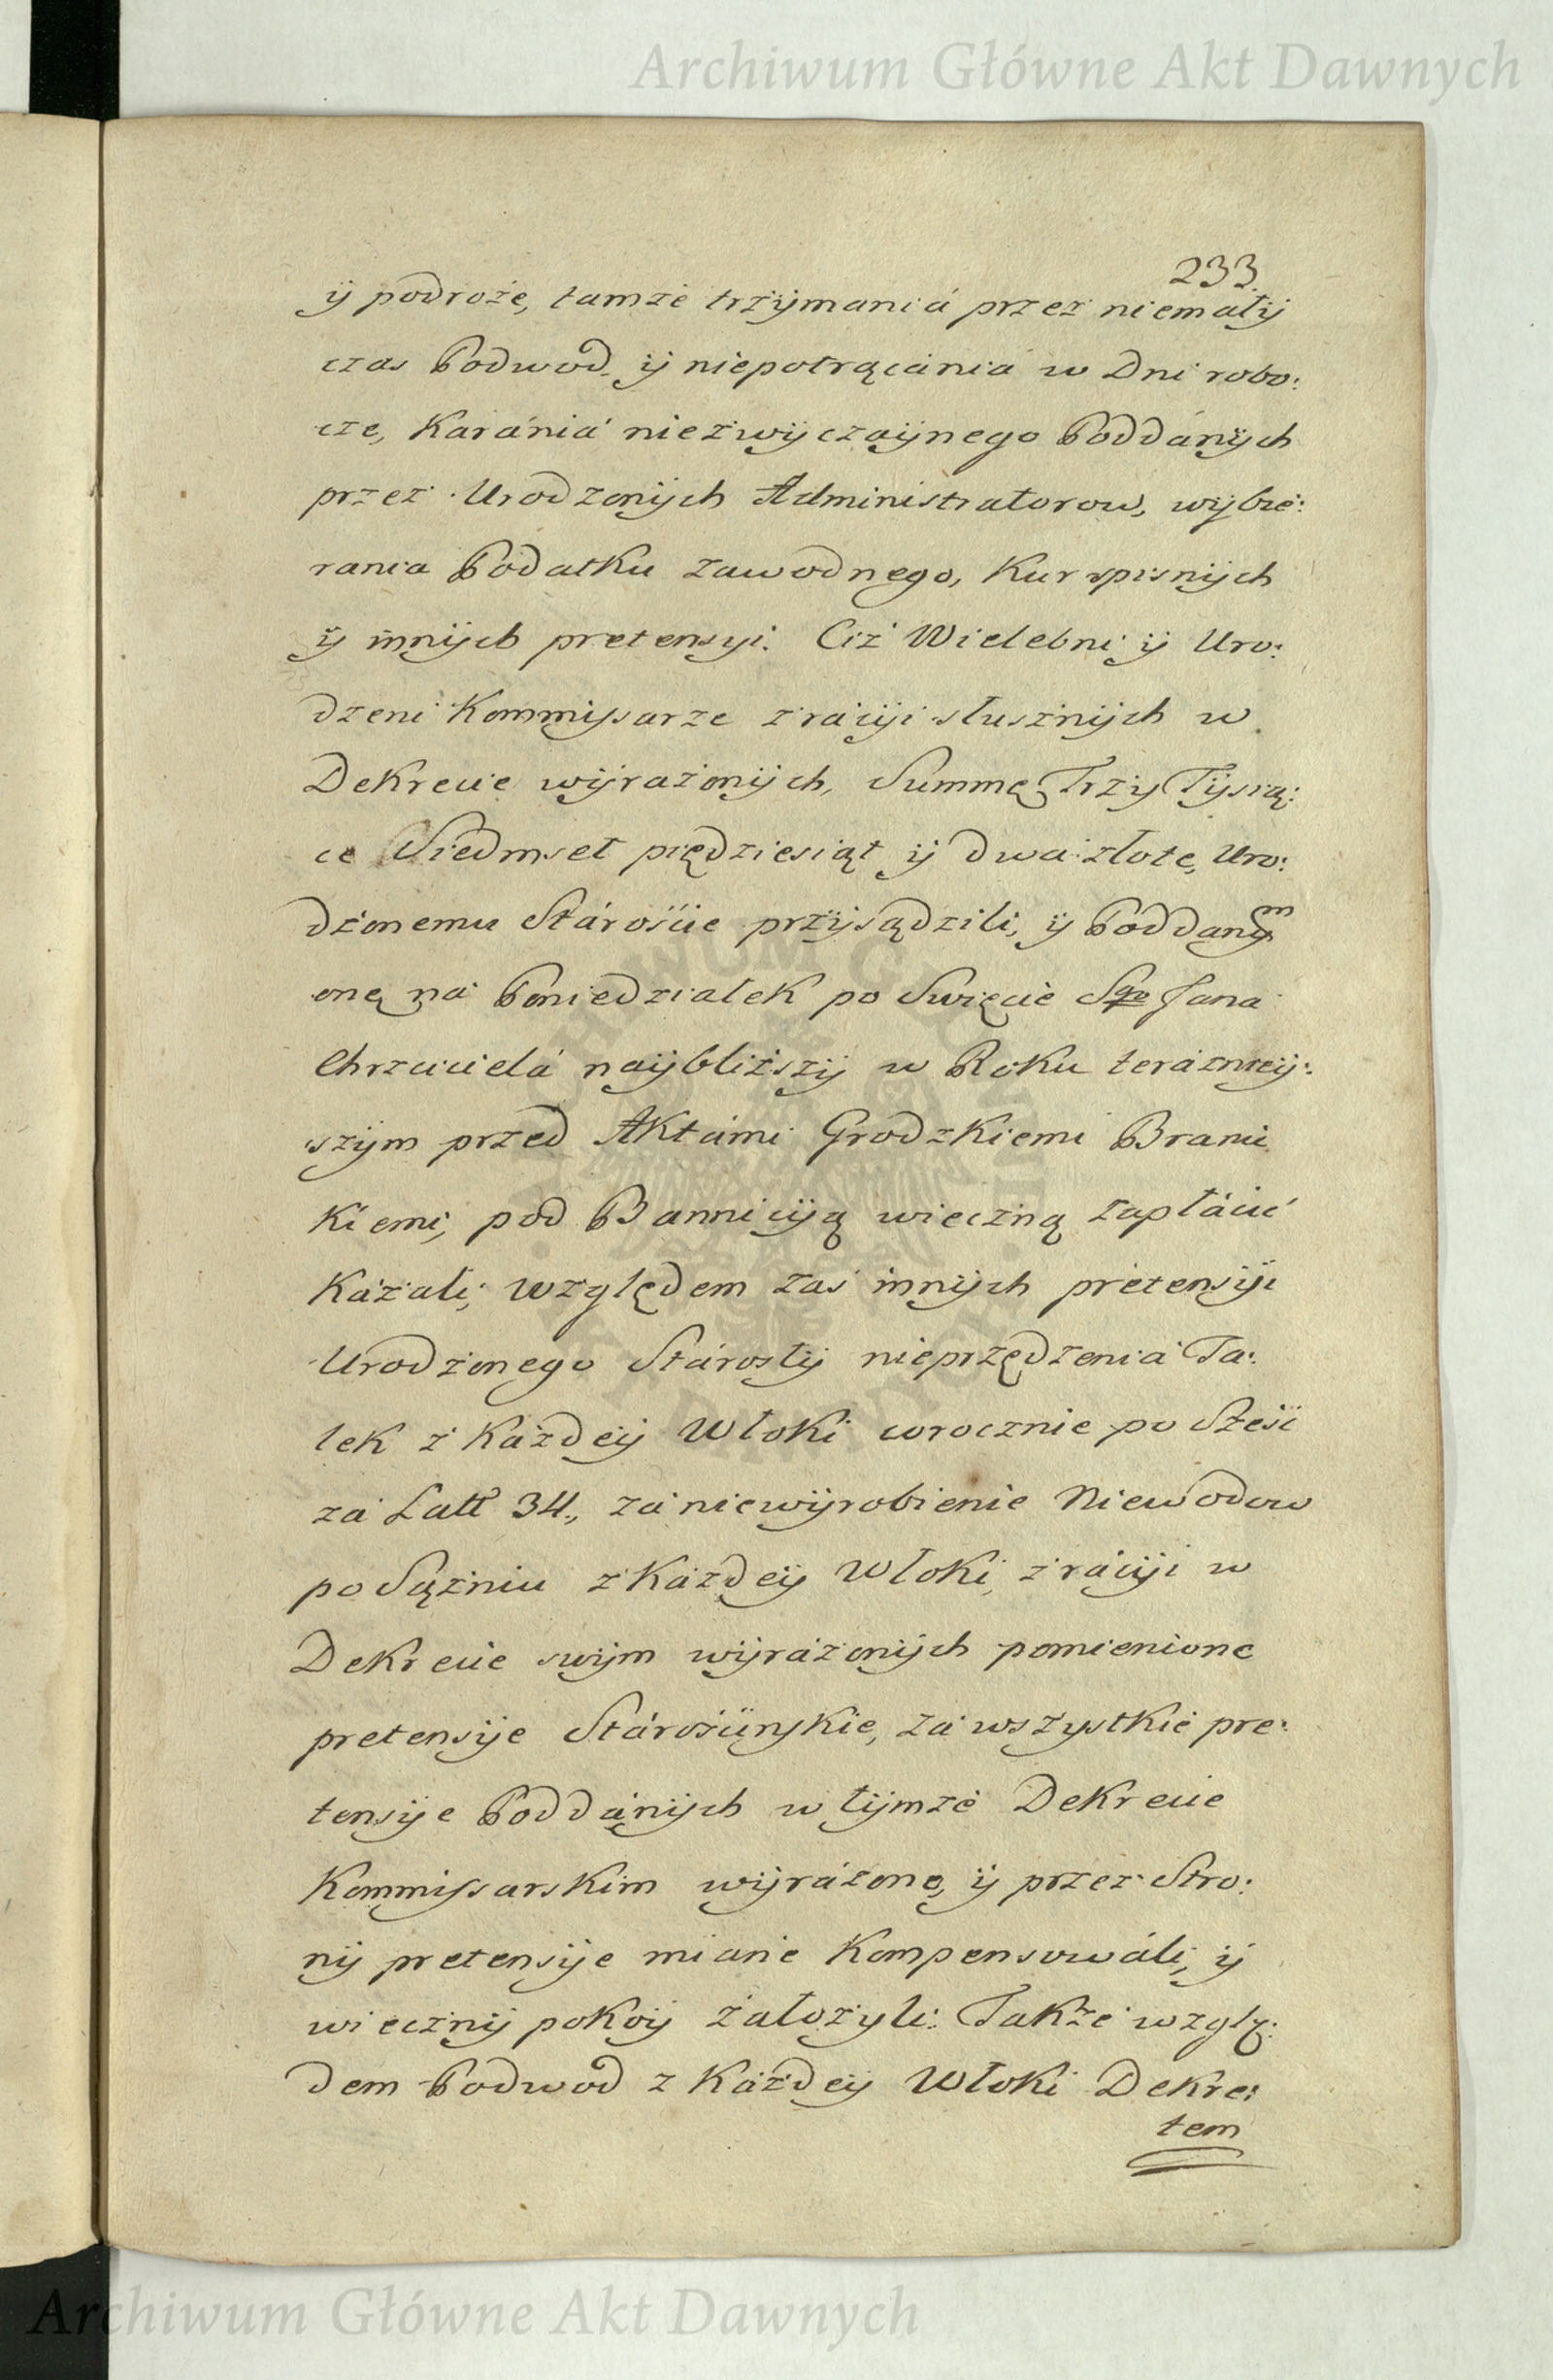 Archiwum Główne Akt Dawnych
233.
ÿ podroże, tamże trzÿmaniá przez niemałÿ
czas Podwod, ÿ niepotrącánia w Dni robo:
cze, Karániá niezwÿczaÿnego Poddánÿch
przez Urodzonÿch Administratorow, wÿbie:
rania Podatku zawodnego, Kur spisnÿch
ÿ innÿch pretensyi. Ciż Wielebni ÿ Uro:
dzeni Kommissarze z ráciji słusznÿch w
Dekrecie wÿrażonÿch, Summę Trzy Tÿsią:
ce Siedmset piędziesiąt ÿ dwa złote, Uro:
dzonemu Stároście przÿsądzili, ÿ Poddanÿm
onę ná Poniedziałek po Swięcie Sgo Jana
Chrzcicielá naÿbliższÿ w Roku teráznieÿ:
szÿm przed Aktámi Grodzkiemi Brani
Kiemi, pod Bannicÿą wieczną zapłácić
Kázali, względem zaś innÿch pretensÿi
Urodzonego Stárostÿ nieprzędzenia Ta:
lek z Káżdeÿ Włoki corocznie po Sześć
zá Latt 34., zá niewÿrobienie Niewodow
po Sążniu z Káżdeÿ Włoki, z ráciji w
Dekrecie swÿm wÿrażonÿch pomienione
pretensÿe Stárościnskie, zá wszystkie pre:
tensÿe Poddánÿch w tÿmże Dekrecie
Kommissarskim wÿrázone, ÿ przez Stro:
nÿ pretensÿe miane Kompensowáli, ÿ
wiecznÿ pokoÿ záłożyli: Także wzglę:
dem Podwod z Káżdeÿ Włoki Dekre:
tem
Archiwum Główne Akt Dawnych